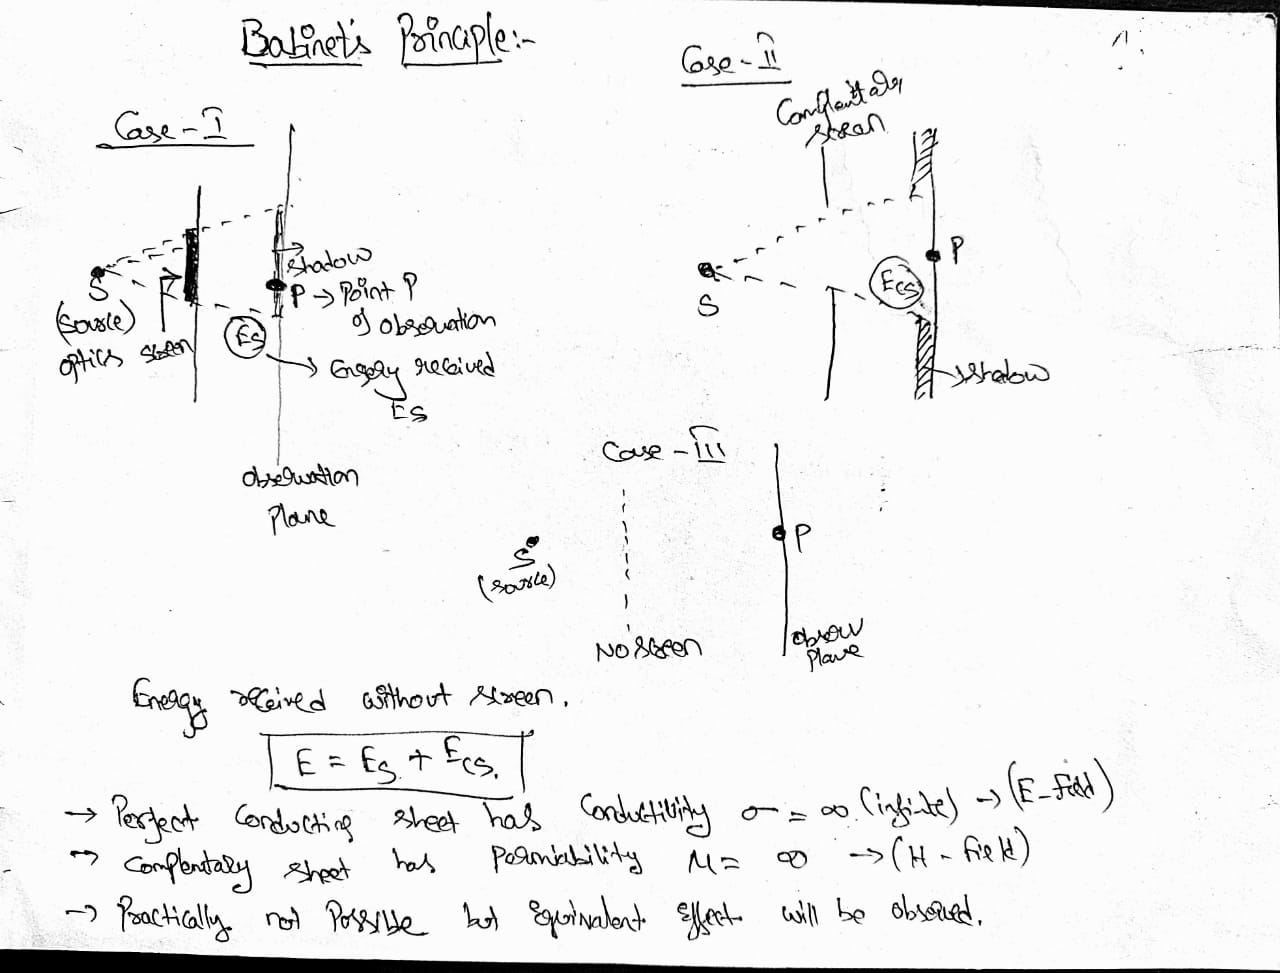 Babinet's Principle:-
Case - I
S
(Source)
optics screen
shadow
P → Point P
of observation
Es
→ Energy received
Es
observation
Plane
Case - II
screen
S
P
Ecs
shadow
Case - III
S
(source)
No screen
P
Plane
Energy received without screen.
E = Es + Ecs.
→ Perfect conducting sheet has conductivity σ = ∞ (infinite) → (E-field)
→ sheet has μ = ∞ → (H - field)
→ Practically not Possible but equivalent effect will be observed.